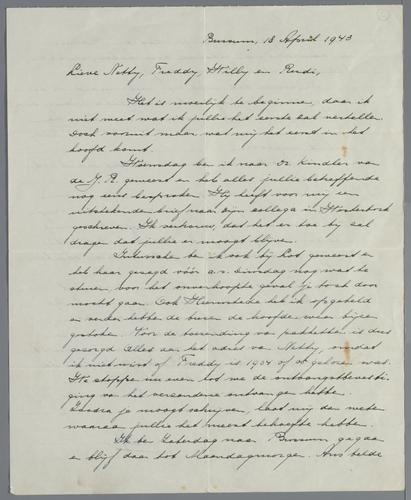 Bussum, 18 April 1943
Lieve Netty, Freddy, Willy en Rudi,
Het is moeilijk te beginnen, daar ik
niet weet wat ik jullie het eerste zal vertellen.
Doch vooruit maar wat mij het eerst in het
hoofd komt.
Woensdag ben ik naar Dr Kindler van
de J. R. geweest en heb alles jullie betreffende
nog eens besproken. Hij heeft voor mij een
uitstekende brief naar zijn collega in Westerbork
geschreven. Ik vertrouw, dat het er toe bij zal
dragen dat jullie er moogt blijven.
ben ik ook bij geweest en
heb haar gezegd vóór a.s. dinsdag nog wat te
sturen voor het onverhoopte geval je toch door
mocht gaan. Ook heb ik opgebeld
en verder hebben de buren de hoofden weer bijeen
gestoken. Voor de toezending van pakketten is dus
gezorgd alles aan het adres van Netty, omdat
ik niet wist of Freddy in 1904 of 05 geboren was.
We stoppen nu even tot we de ontvangstbevesti-
ging van het verzondene ontvangen hebben.
Zoodra je moogt schrijven, laat mij dan weten
waaraan jullie het meest behoefte hebben.
Ik ben Zaterdag naar Bussum gegaan
en blijf daar tot Maandagmorgen. Ans belde